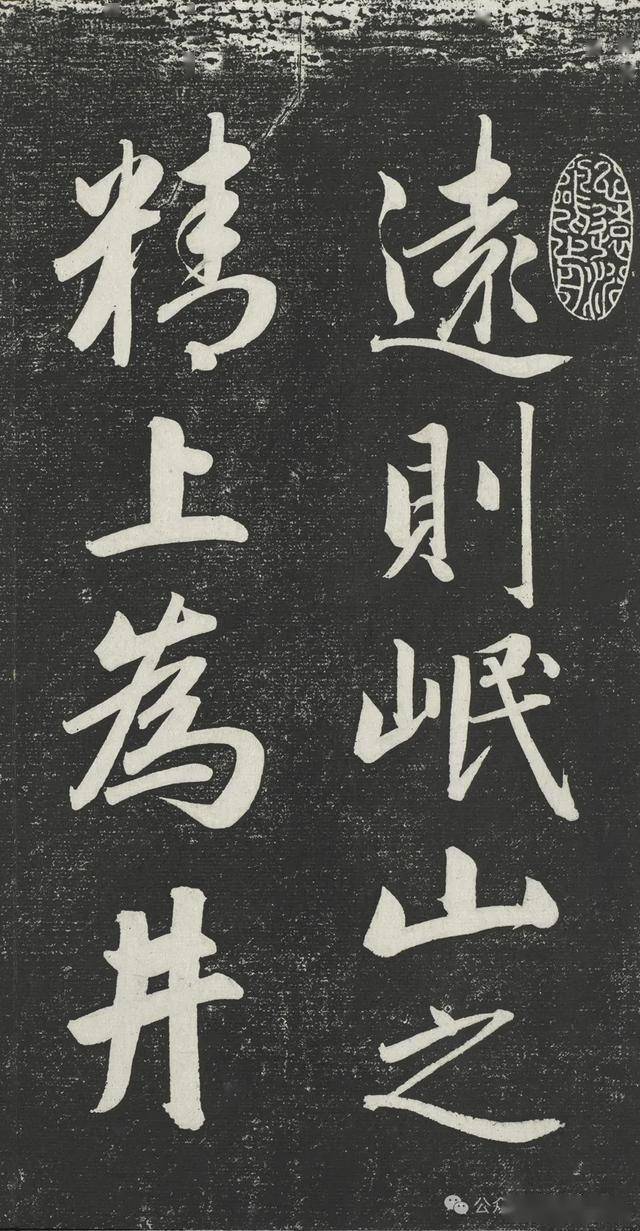 遠則岷山之
精上為井
公众